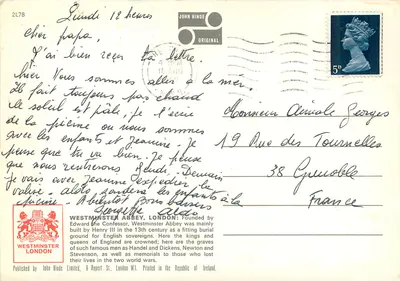 2L78
Lundi 12 heures
JOHN HINDE
ORIGINAL
Cher papa,
J'ai bien reçu ta lettre.
hier nous sommes allés à la mer.
Il fait toujours pas chaud
le soleil est pâle, je t'écris
de la piscine ou nous sommes
avec les enfants et Jeanine. Je
pense que tu vas bien. Je pense
que nous rentrerons Demain
je vais avec Jeanine expédier la
valise. les enfants à la
piscine. Bientôt Bons baisers
5D
Monsieur Georges
19 Rue des Tournelles
38 Grenoble
France
WESTMINSTER
LONDON
WESTMINSTER ABBEY, LONDON: Founded by
Edward the Confessor, Westminster Abbey was mainly
built by Henry III in the 13th century as a fitting burial
ground for English sovereigns. Here the kings and
queens of England are crowned; here are the graves
of such famous men as Handel and Dickens, Newton and
Stevenson, as well as memorials to those who lost
their lives in the two world wars.
Published by John Hinde Limited, London W1. Printed in the Republic of Ireland.